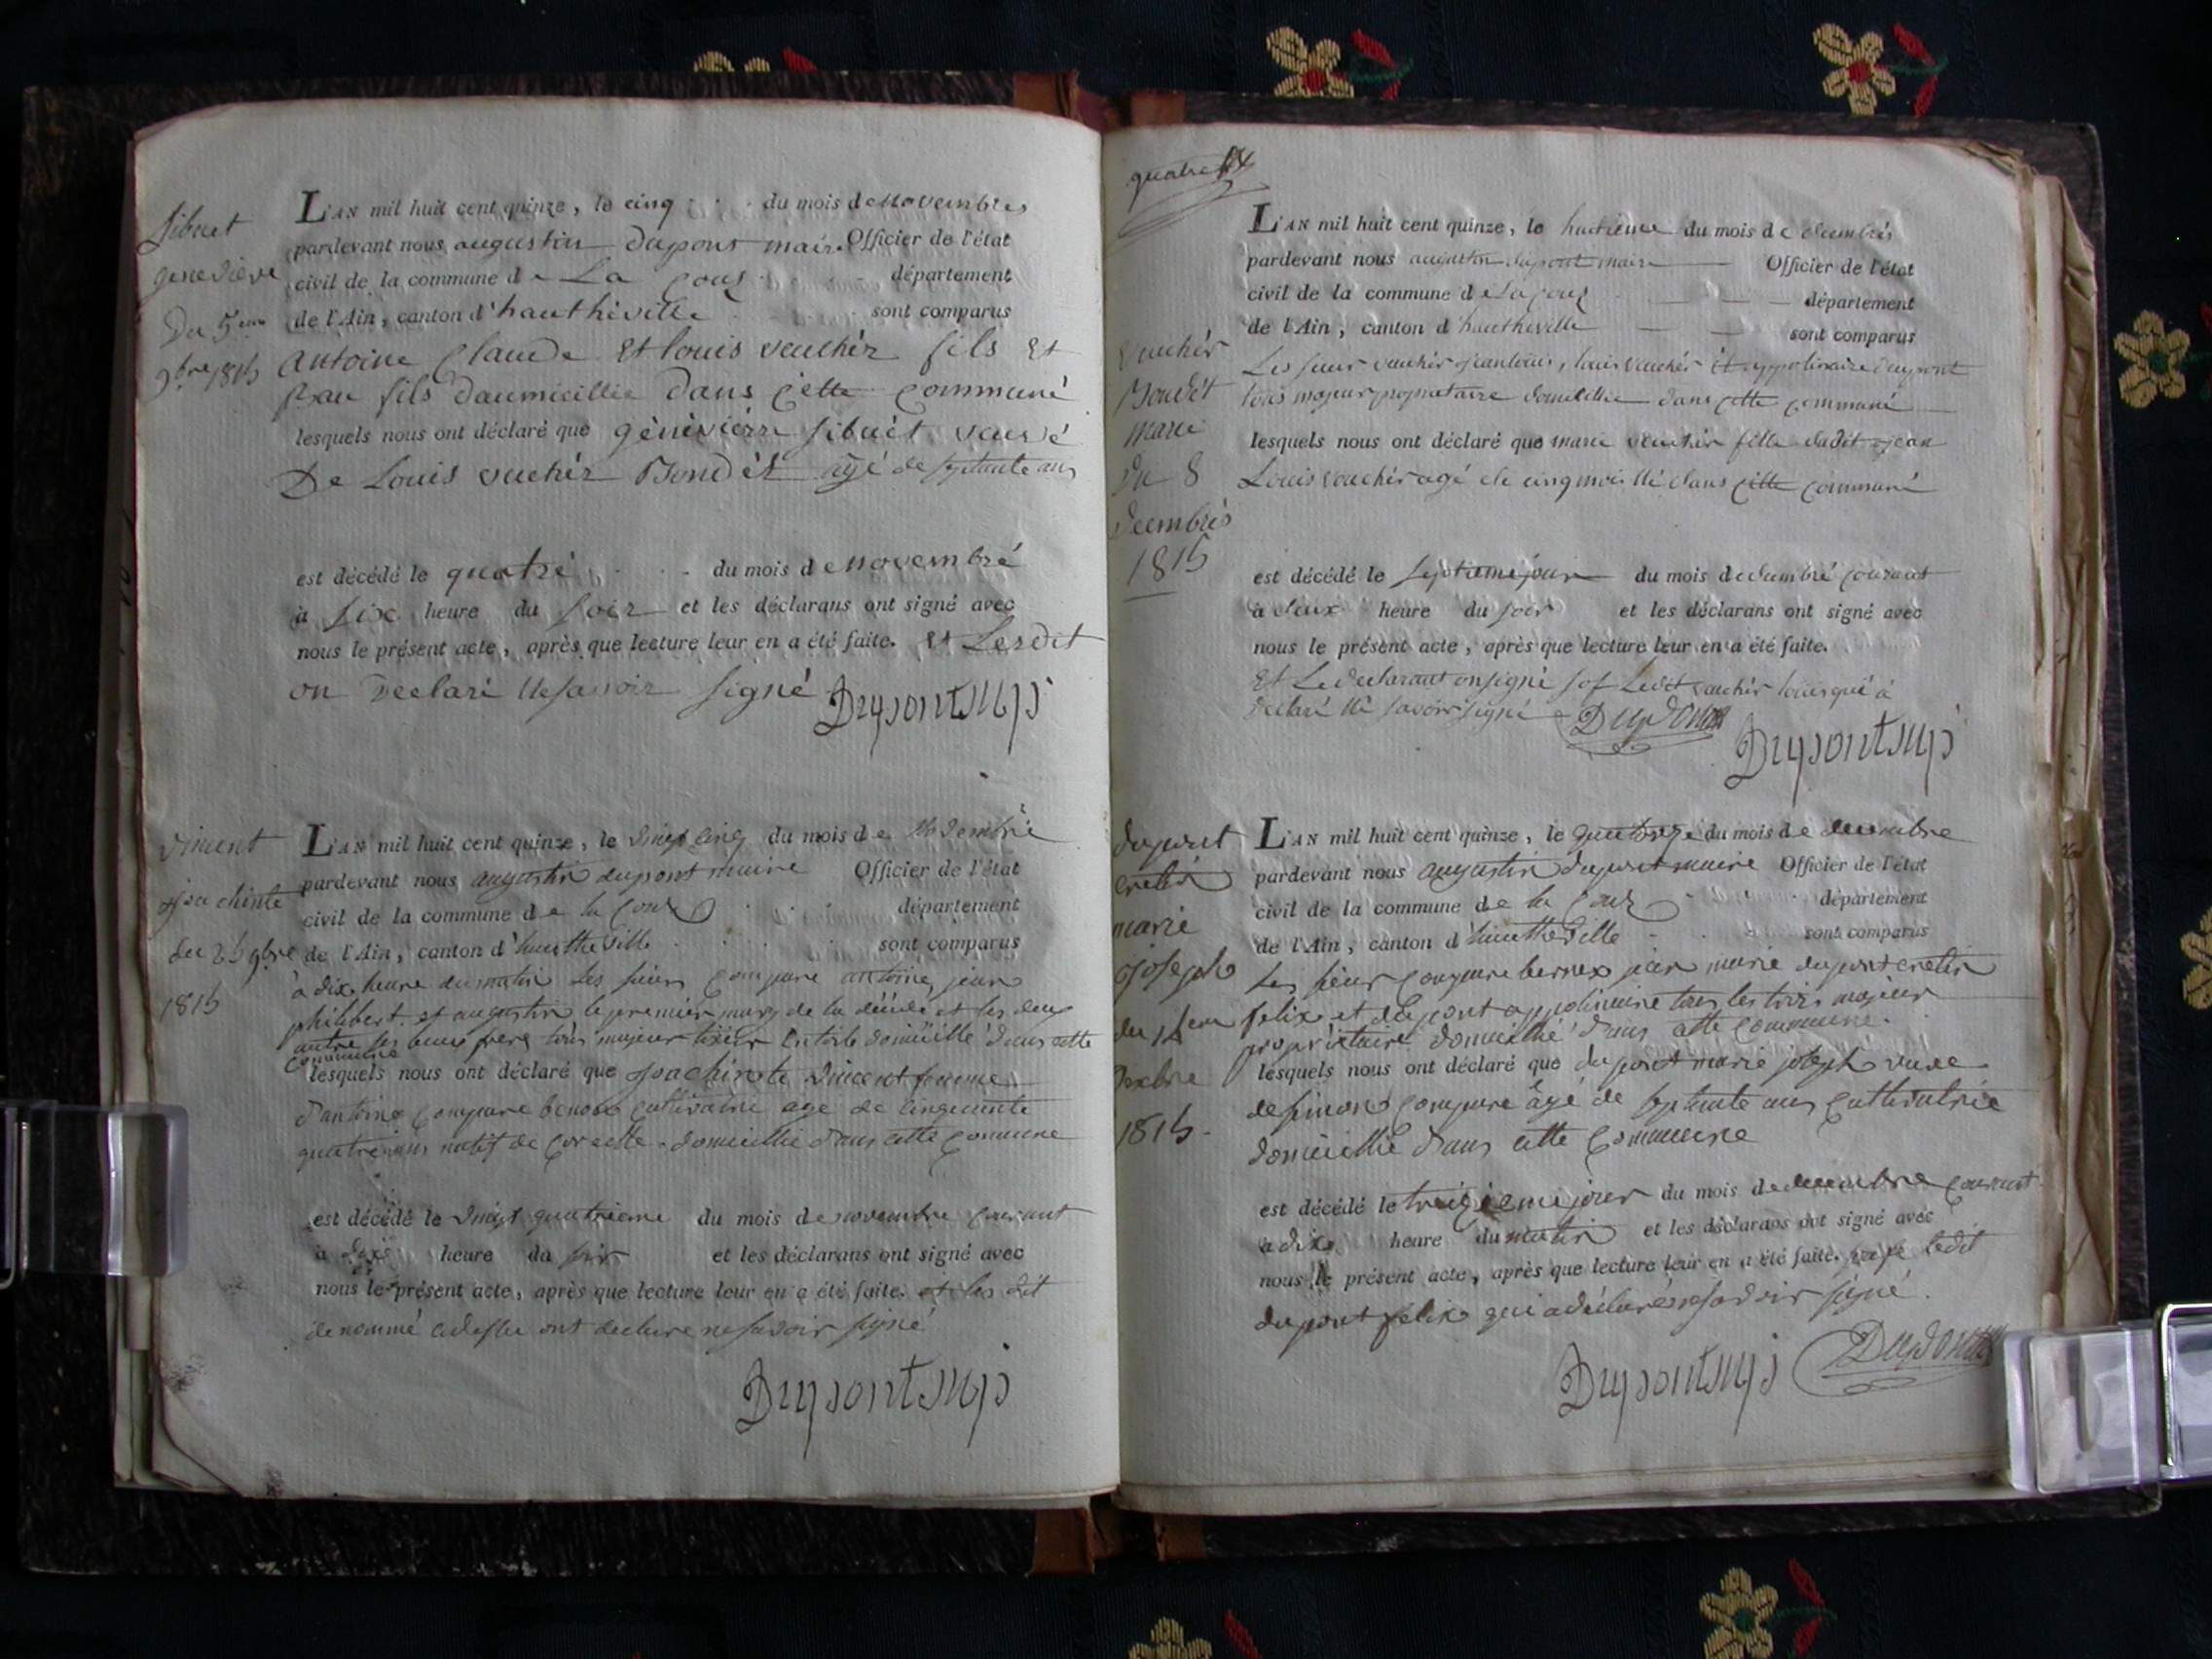 Sibuet
genevieve
Du 5.eme
9bre 1815
L'AN mil huit cent quinze, le cinq du mois de Novembres
pardevant nous augustin dupont maire Officier de l'état
civil de la commune de La Couz département
de l'Ain, canton d'hautheville sont comparus
Antoine Claude Et louis vuchér fils Et
fils daumicillie dans cette communé
lesquels nous ont déclaré que génèvièrre sibuét veuvé
De Louis vuchér Bondét agé de septante ans
est décédé le quatré du mois de Novembré
à six heure du soir et les déclarans ont signé avec
nous le présent acte, après que lecture leur en a été faite. Et Lesdit
on declaré Ne savoir signé Dupont
vincent
Joachinte
du 25 9bre
1815
L'AN mil huit cent quinze, le vingt cinq du mois de Novembre
pardevant nous augustin dupont maire Officier de l'état
civil de la commune de la Couz département
de l'Ain, canton d'hautheville sont comparus
à dix heure du matin Les sieurs Compare antoine, jean
philibert et augustin le premier mary de la dècèdé et les deux
autre ses beaux frere tous majeur domicillié dans cette
commune
lesquels nous ont déclaré que Joachinte vincent femme
d'antoine Compare cultivatrice agé de cinquante
quatre ans natif de domicillié dans cette commune
est décédé le vingt quatrieme du mois de novembre courant
à heure du soir et les déclarans ont signé avec
nous le présent acte, après que lecture leur en a été faite. et les dit
denommé ont declaré ne savoir signé
Dupont
vuchér
Bondét
marie
Du 8
Decembrés
1815
L'AN mil huit cent quinze, le huitieme du mois de decembrés
pardevant nous augustin dupont maire Officier de l'état
civil de la commune de La Couz département
de l'Ain, canton d'hautheville sont comparus
Les sieur vuchér jean louis, louis vuchér Et dupont
tous majeur propriétaire domicillie dans cette communé
lesquels nous ont déclaré que marie vuchér fille dudit jean
Louis vuchér agé de cinq mois né dans cette communé
est décédé le septieme jour du mois de decembré courant
à deux heure du soir et les déclarans ont signé avec
nous le présent acte, après que lecture leur en a été faite.
Et Le declarant on signé sof Ledit vuchér louis qui à
declaré Ne savoir signé Dupont
Dupont
dupont
cretin
marie
Joseph
du 14.eme
Xbre
1815.
L'AN mil huit cent quinze, le quatorze du mois de decembre
pardevant nous augustin dupont maire Officier de l'état
civil de la commune de la Couz département
de l'Ain, canton d'hautheville sont comparus
Les sieur Compare jean marie dupont cretin
felix et dupont appolinaire tous les trois majeur
propriètaire domicillié dans cette commune.
lesquels nous ont déclaré que dupont marie joseph veuve
de simon Compare âgé de septante ans cultivatrice
domicillié dans cette commune
est décédé le treizieme jour du mois de decembre courant
à dix heure du matin et les déclarans ont signé avec
nous le présent acte, après que lecture leur en a été faite. ledit
dupont felix qui a déclaré ne savoir signé.
Dupont Dupont